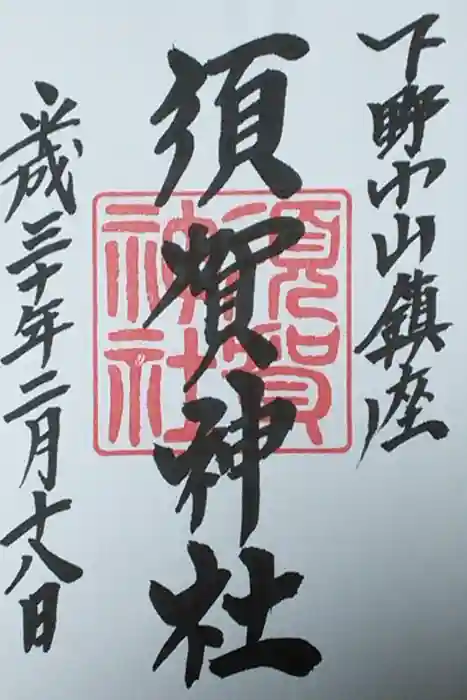 下野小山鎮座
須賀神社
須賀
神社
平成三十年二月十八日